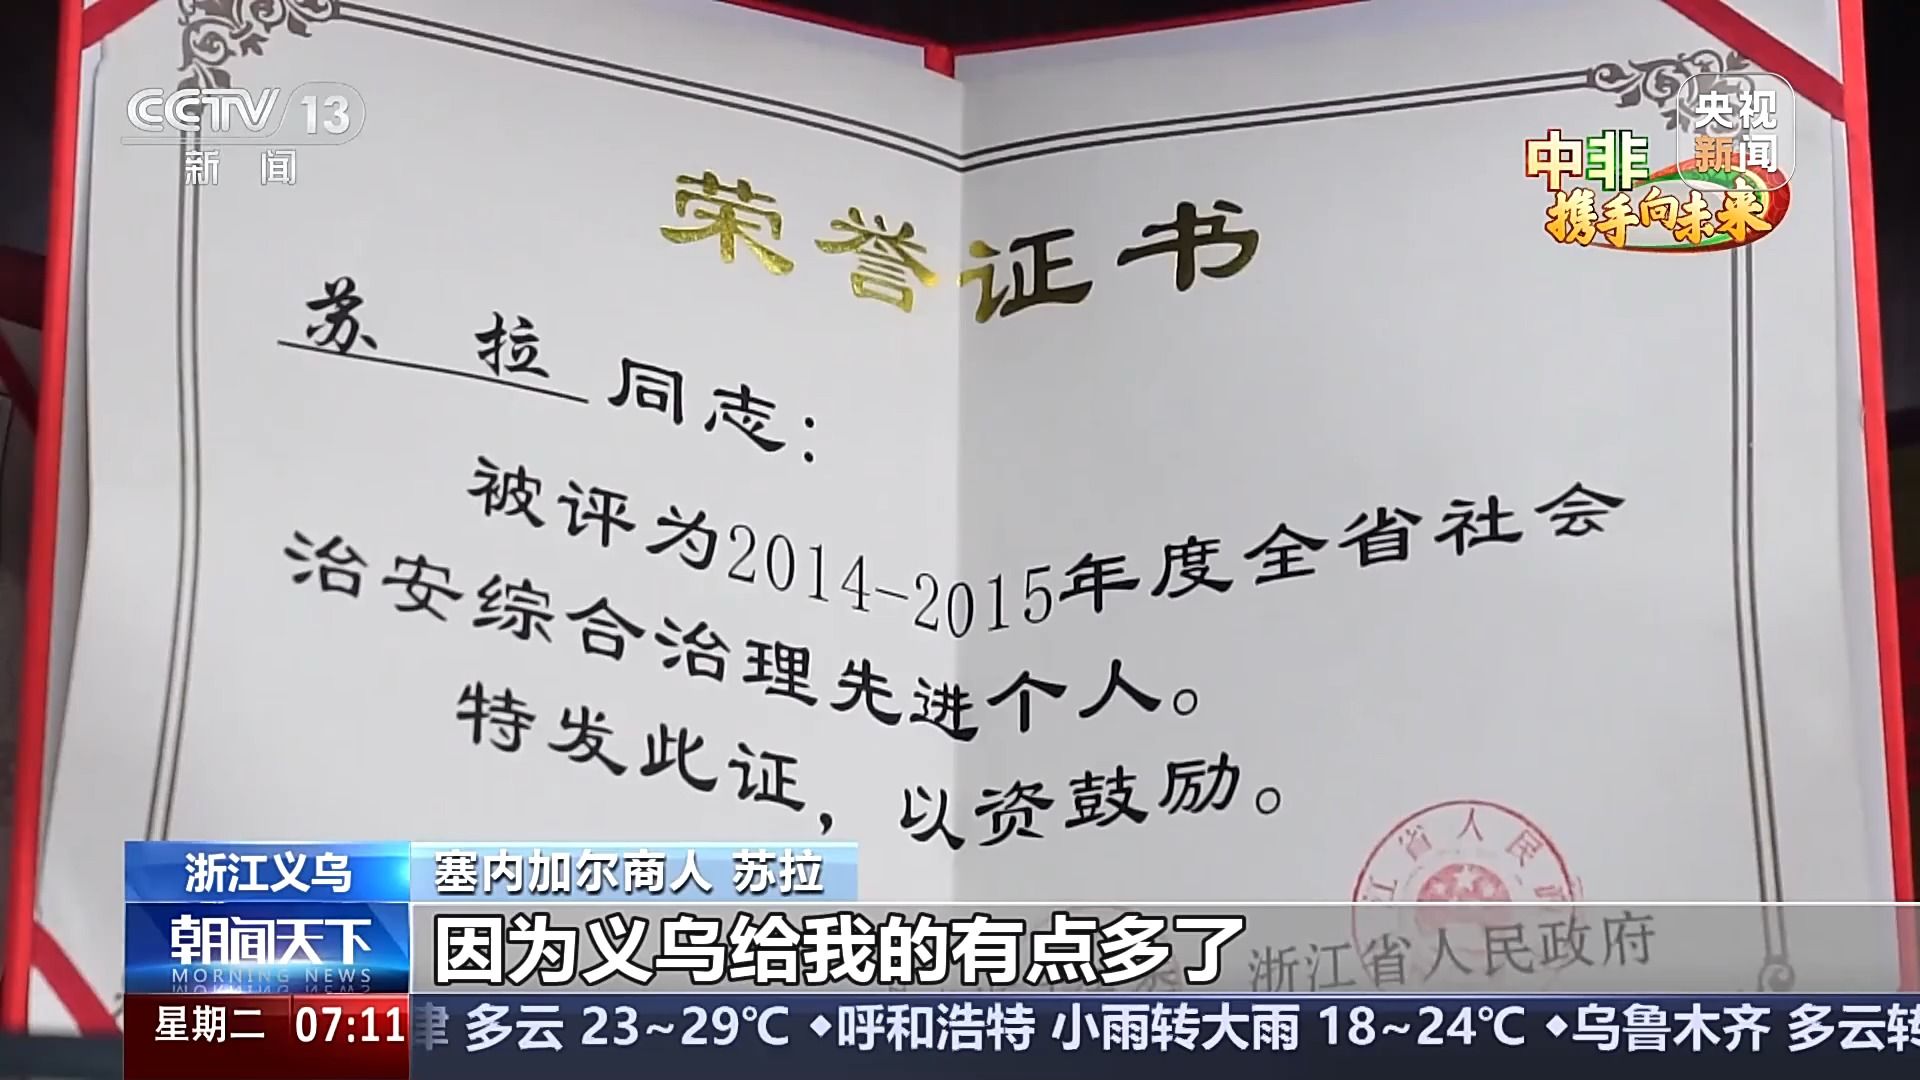 CCTV 13
新闻
央视
新闻
中非
携手向未来
荣誉证书
苏 拉 同志：
被评为2014-2015年度全省社会
治安综合治理先进个人。
特发此证，以资鼓励。
江省人民政
浙江省人民政府
浙江义乌
塞内加尔商人 苏拉
朝闻天下
MORNING NEWS
因为义乌给我的有点多了
星期二 07:11
津 多云 23~29℃ ◆呼和浩特 小雨转大雨 18~24℃ ◆乌鲁木齐 多云转